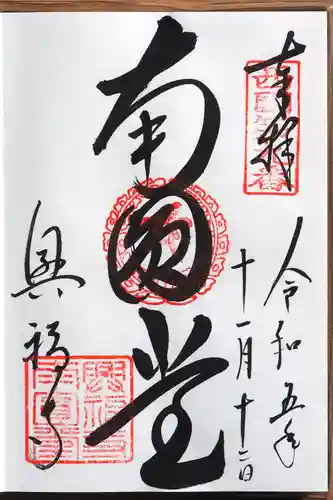 奉拝
令和五年
十一月十二日
南圓堂
興福寺